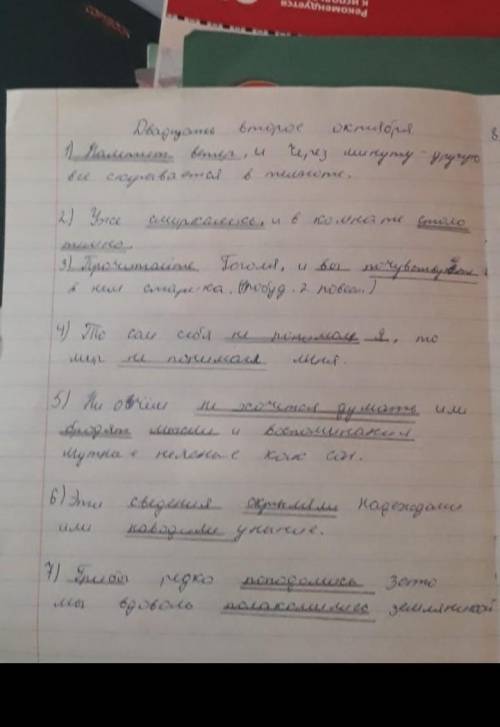 Рекомендуется
Двадцать второе октября
8
1) Налетит ветер, и через минуту-другую
все скрывается в темноте.
2) Уже смеркалось, и в комнате стало
темно.
3) Прочитайте Гоголя, и вы почувствуете
в нем старика. (побуд. 2 повест.)
4) То сам себя не понимаю я, то
мир не понимает меня.
5) Ни о чём не хочется думать или
бродят мысли и воспоминания
мутные неясные как сон.
6) Эти сведения окрыляли надеждами
или наводили уныние.
7) Грибы редко попадались Зато
мы вдоволь полакомились земляникой